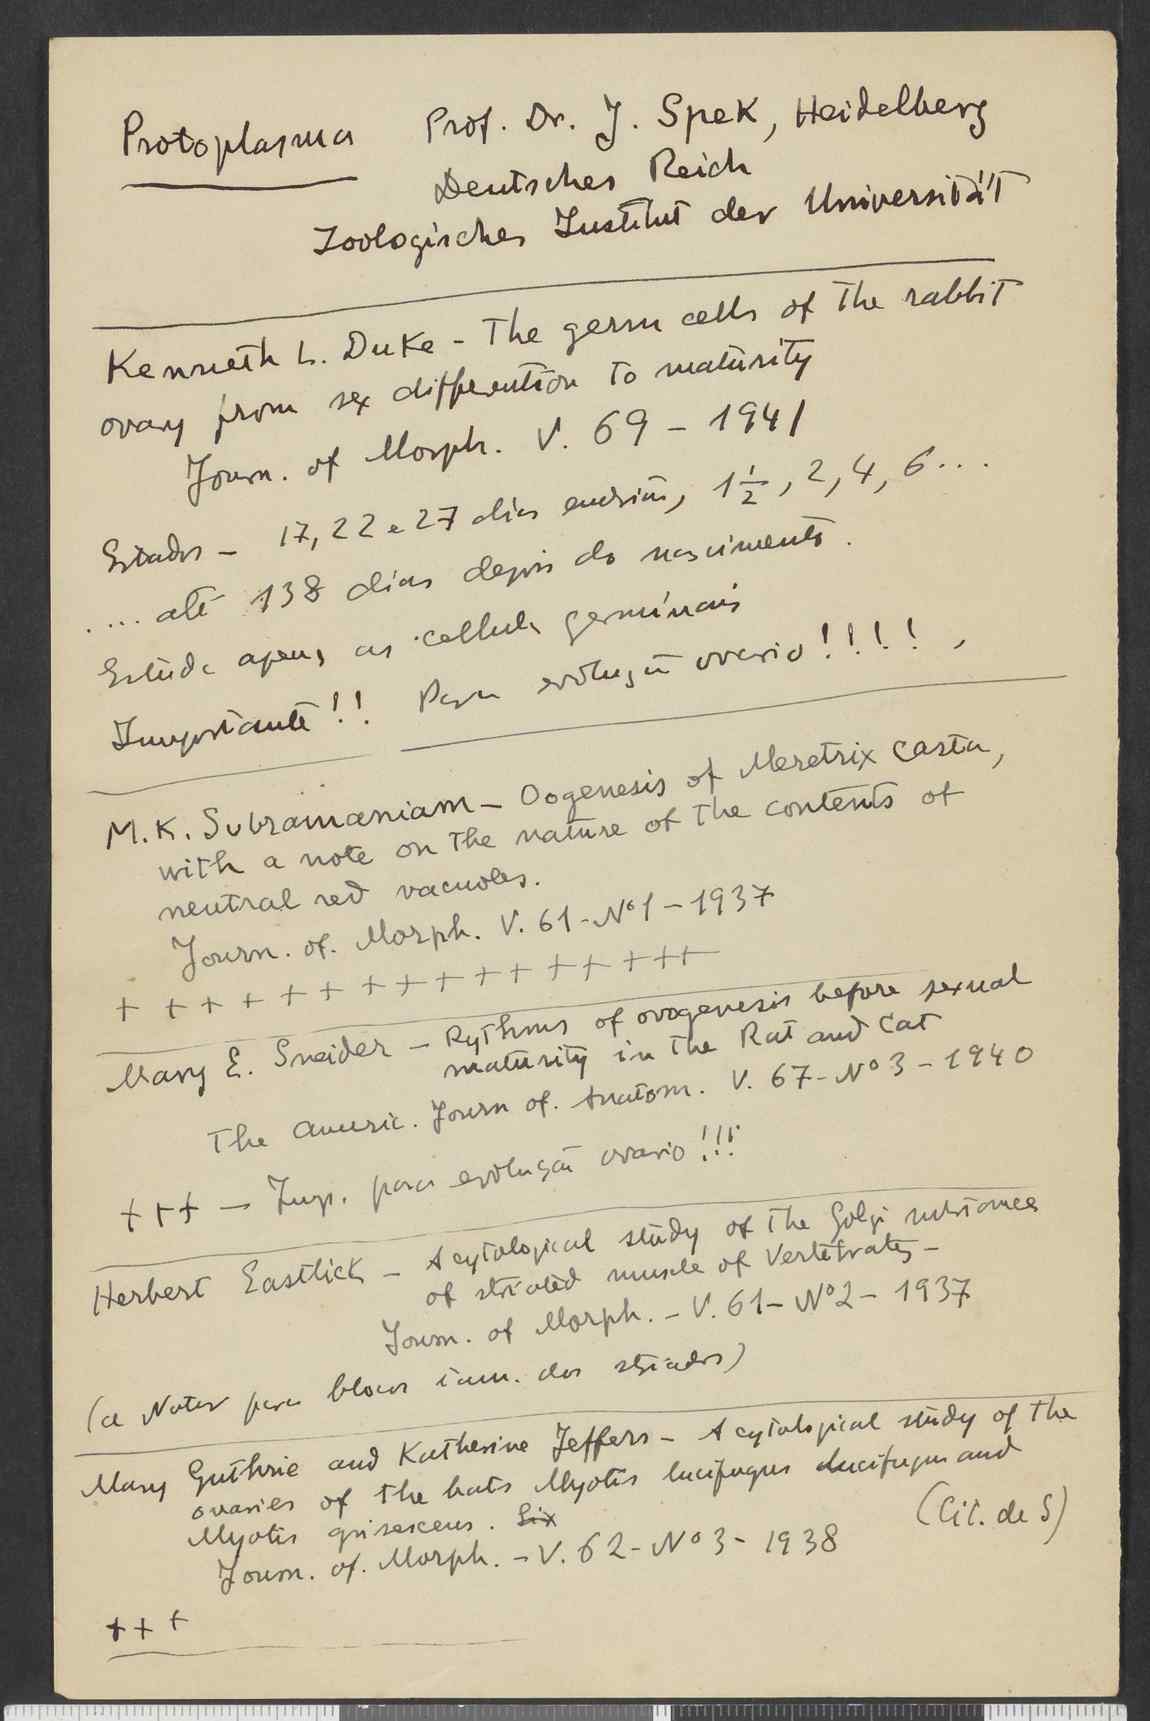 Protoplasma Prof. Dr. J. Spek, Heidelberg
Deutsches Reich
Zoologisches Institut der Universität
Kenneth L. Duke - The germ cells of the rabbit
ovary from sex differention to maturity
Journ. of Morph. V. 69 - 1941
Estados - 17, 22 e 27 dias embrião, 1 1/2, 2, 4, 6 ...
.... até 138 dias depois do nascimento.
Estuda apenas as cellulas germinais
Importante!! Para evolução ovario!!!!
M. K. Subramaniam - Oogenesis of Meretrix casta,
with a note on the nature of the contents of
neutral red vacuoles.
Journ. of. Morph. V. 61 - Nº 1 - 1937
+ + + + + + + + + + + + + + + +
Mary E. Sneider - Rythms of ovogenesis before sexual
maturity in the Rat and Cat
The Americ. Journ of. Anatom. V. 67 - Nº 3 - 1940
+++ - Imp. para evolução ovario!!!
Herbert Eastlick - A cytological study of the Golgi substances
of striated muscle of Vertebrates -
Journ. of Morph. - V. 61 - Nº 2 - 1937
(a Notar para dos striados)
Mary Guthrie and Katherine Jeffers - A cytological study of the
ovaries of the bats Myotis lucifugus lucifugus and
Myotis grisescens. Six (Cit. de S)
Journ. of. Morph. - V. 62 - Nº 3 - 1938
+++